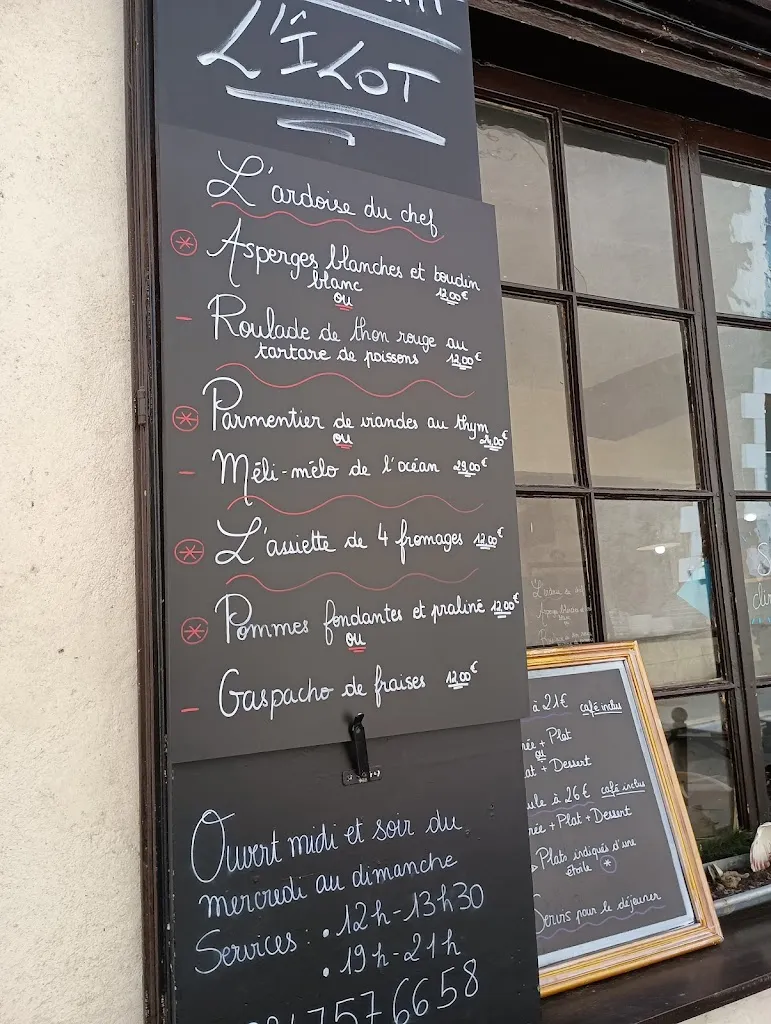 L'ÎLOT
L'ardoise du chef
Asperges blanches et boudin
blanc 12,00€
ou
Roulade de thon rouge au
tartare de poissons 12,00€
Parmentier de viandes au thym
ou 24,00€
Méli-mélo de l'océan 29,00€
L'assiette de 4 fromages 12,00€
Pommes fondantes et praliné 12,00€
ou
Gaspacho de fraises 12,00€
Ouvert midi et soir du
mercredi au dimanche
Services : • 12h-13h30
• 19h-21h
7576658
à 21€ café inclus
+ Plat
ou
+ Dessert
à 26€ café inclus
+ Plat + Dessert
Plats indiqués d'une
étoile *
Servis pour le déjeuner